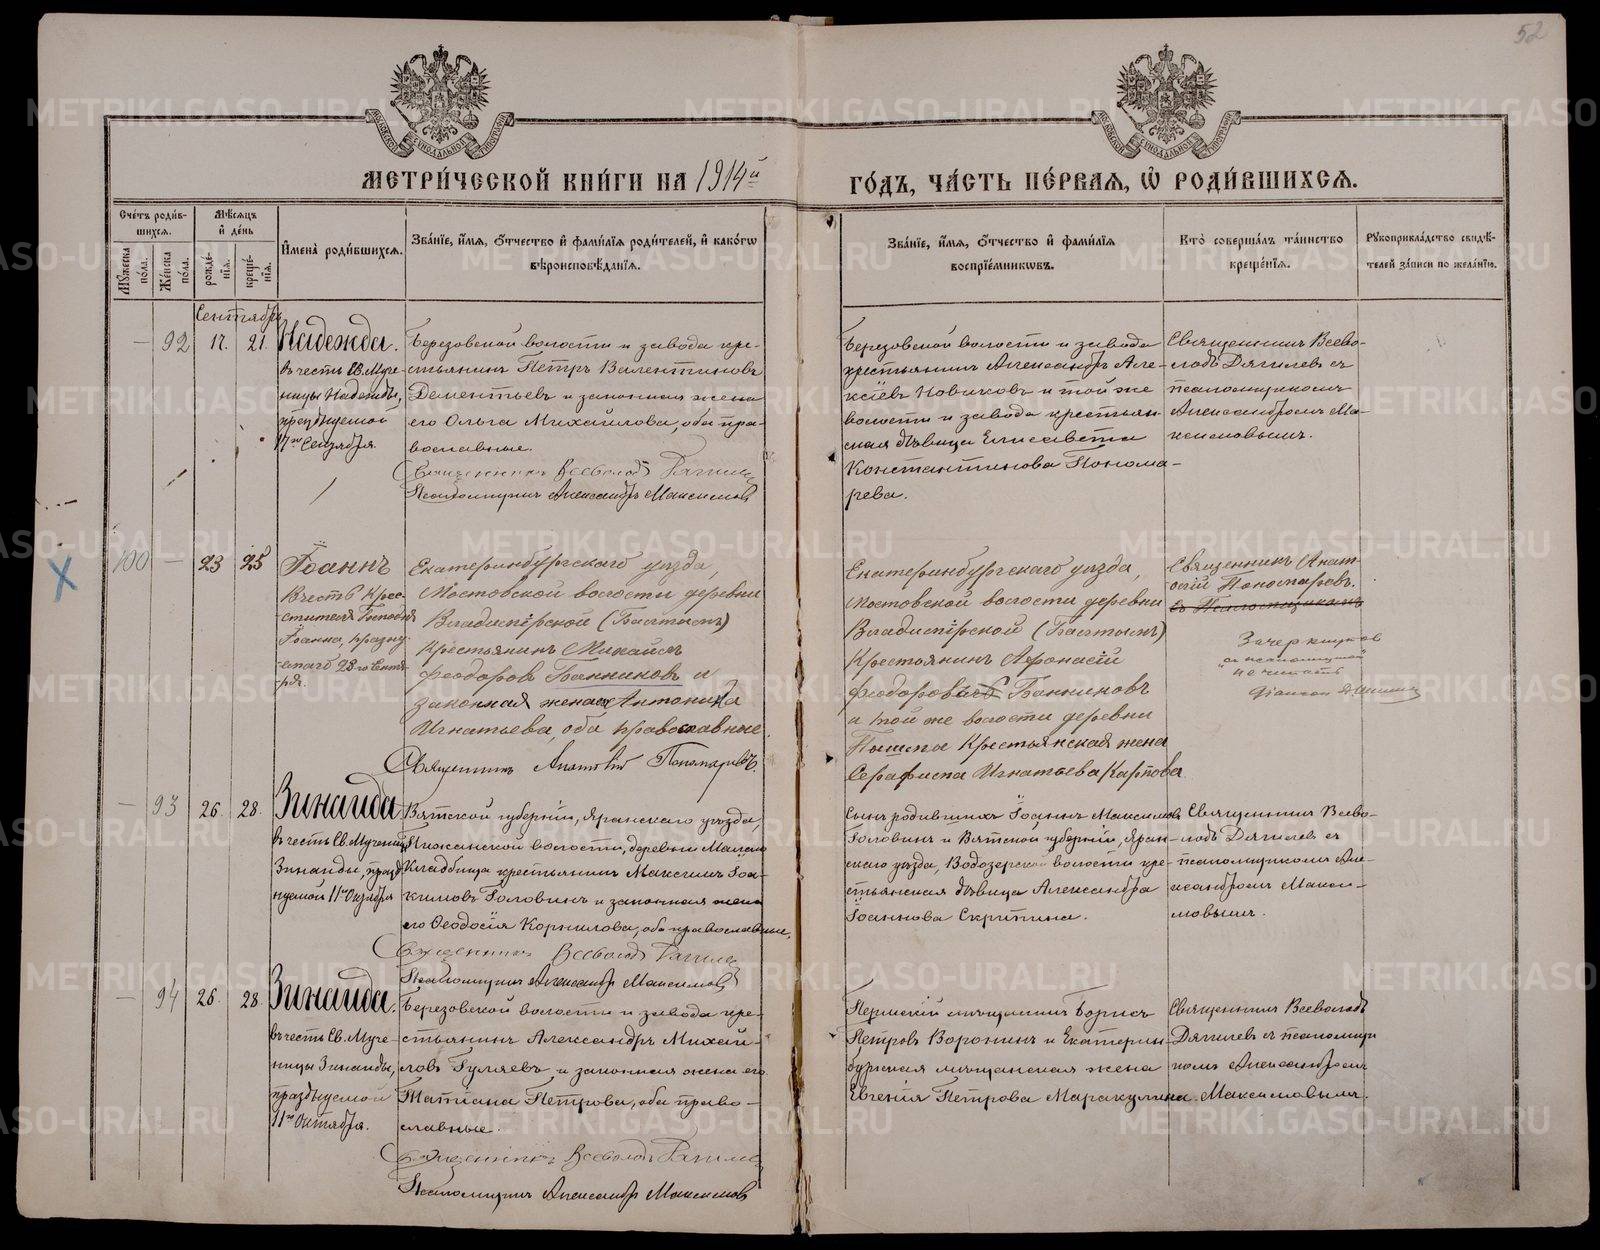 52
МЕТРИ́ЧЕСКОЙ КНИ́ГИ НА 1914й
ГО́ДЪ, ЧА́СТЬ ПЕ́РВАЯ, Ѽ РОДИ́ВШИХСЯ.
Сче́тъ роди́в-
шихся.
Му́жеска по́ла.
Же́нска по́ла.
Мѣ́сяцъ
и҆ де́нь
рожде́-
нїя.
креще́-
нїя.
И҆мена̀ роди́вшихся.
Зва́нїе, и҆́мя, о҆́тчество и҆ фами́лїя роди́телей, и҆ како́гѡ
вѣроисповѣ́данїя.
Зва́нїе, и҆́мя, о҆́тчество и҆ фами́лїя
воспрїе́мниковъ.
Кто̀ соверша́лъ та́инство
креще́нїя.
Рукоприкла́дство свидѣ́-
телей за́писи по жела́нїю.
Сентябрь
— 92 17. 21.
Надежда.
въ честь Св. Муче-
ницы Надежды,
празднуемой
17го Сентября.
Березовской волости и завода кре-
стьянинъ Петръ Валентиновъ
Дементьевъ и законная жена
его Ольга Михайлова, оба пра-
вославные.
Священникъ Всеволодъ Дягилевъ
Псаломщикъ Александръ Максимовъ
Березовской волости и завода
крестьянинъ Александръ Але-
ксѣевъ Новиковъ и той же
волости и завода крестьян-
ская дѣвица Елисавета
Константинова Понома-
рева.
Священникъ Всево-
лодъ Дягилевъ съ
псаломщикомъ
Александромъ Ма-
ксимовымъ.
100 — 23 25
Іоаннъ
Въ честь Крес-
стителя Господня
Іоанна, празну
емаго 23го Сентя-
ря.
Екатеринбургскаго уѣзда,
Мостовской волости деревни
Владимірской (Балтымъ)
Крестьянинъ Михаилъ
Феодоровъ Банниковъ и
законная жена Антонина
Игнатьева, оба православные
Священникъ Анатолій Пономаревъ.
Екатеринбургскаго уѣзда,
Мостовской волости деревни
Владимірской (Балтымъ)
Крестьянинъ Афонасій
Феодоровъ Банниковъ
и той же волости деревни
Пышма Крестьянская жена
Серафима Игнатьева Карпова
Священникъ Анат-
олій Пономаревъ.
съ Псаломщикомъ
Зачеркнутое
„съ псаломщикомъ“
не читать
— 93 26 28.
Зинаида
въ честь Св. Мученицы
Зинаиды, празд-
нуемой 11го Октября
Вятской губерніи, Яранскаго уѣзда,
Пижанской волости, деревни Малаго
Кладбища крестьянинъ Максимъ Іоа-
кимовъ Головинъ и законная жена
его Ѳеодосія Корнилова, оба православные.
Священникъ Всеволодъ Дягилевъ
Псаломщикъ Александръ Максимовъ
Сынъ родившихъ Іоаннъ Максимовъ
Головинъ и Вятской губерніи, Яран-
скаго уѣзда, Водозерской волости кре-
стьянская дѣвица Александра
Іоаннова Скрипина.
Священникъ Всево-
лодъ Дягилевъ съ
псаломщикомъ Але-
ксандромъ Макси-
мовымъ.
— 94 26. 28
Зинаида.
въ честь Св. Муче-
ницы Зинаиды,
празднуемой
11го Октября.
Березовской волости и завода кре-
стьянинъ Александръ Михай-
ловъ Гуляевъ и законная жена его
Татиана Петрова, оба право-
славные.
Священникъ Всеволодъ Дягилевъ
Псаломщикъ Александръ Максимовъ
Пермскій мѣщанинъ Борисъ
Петровъ Воронинъ и Екатерин-
бургская мѣщанская жена
Евгенія Петрова Маракулина.
Священникъ Всеволодъ
Дягилевъ съ псаломщи
комъ Александромъ
Максимовымъ.
METRIKI.GASO-URAL.RU